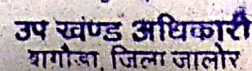 उप खण्ड अधिकारी
बागौडा, जिला जालोर